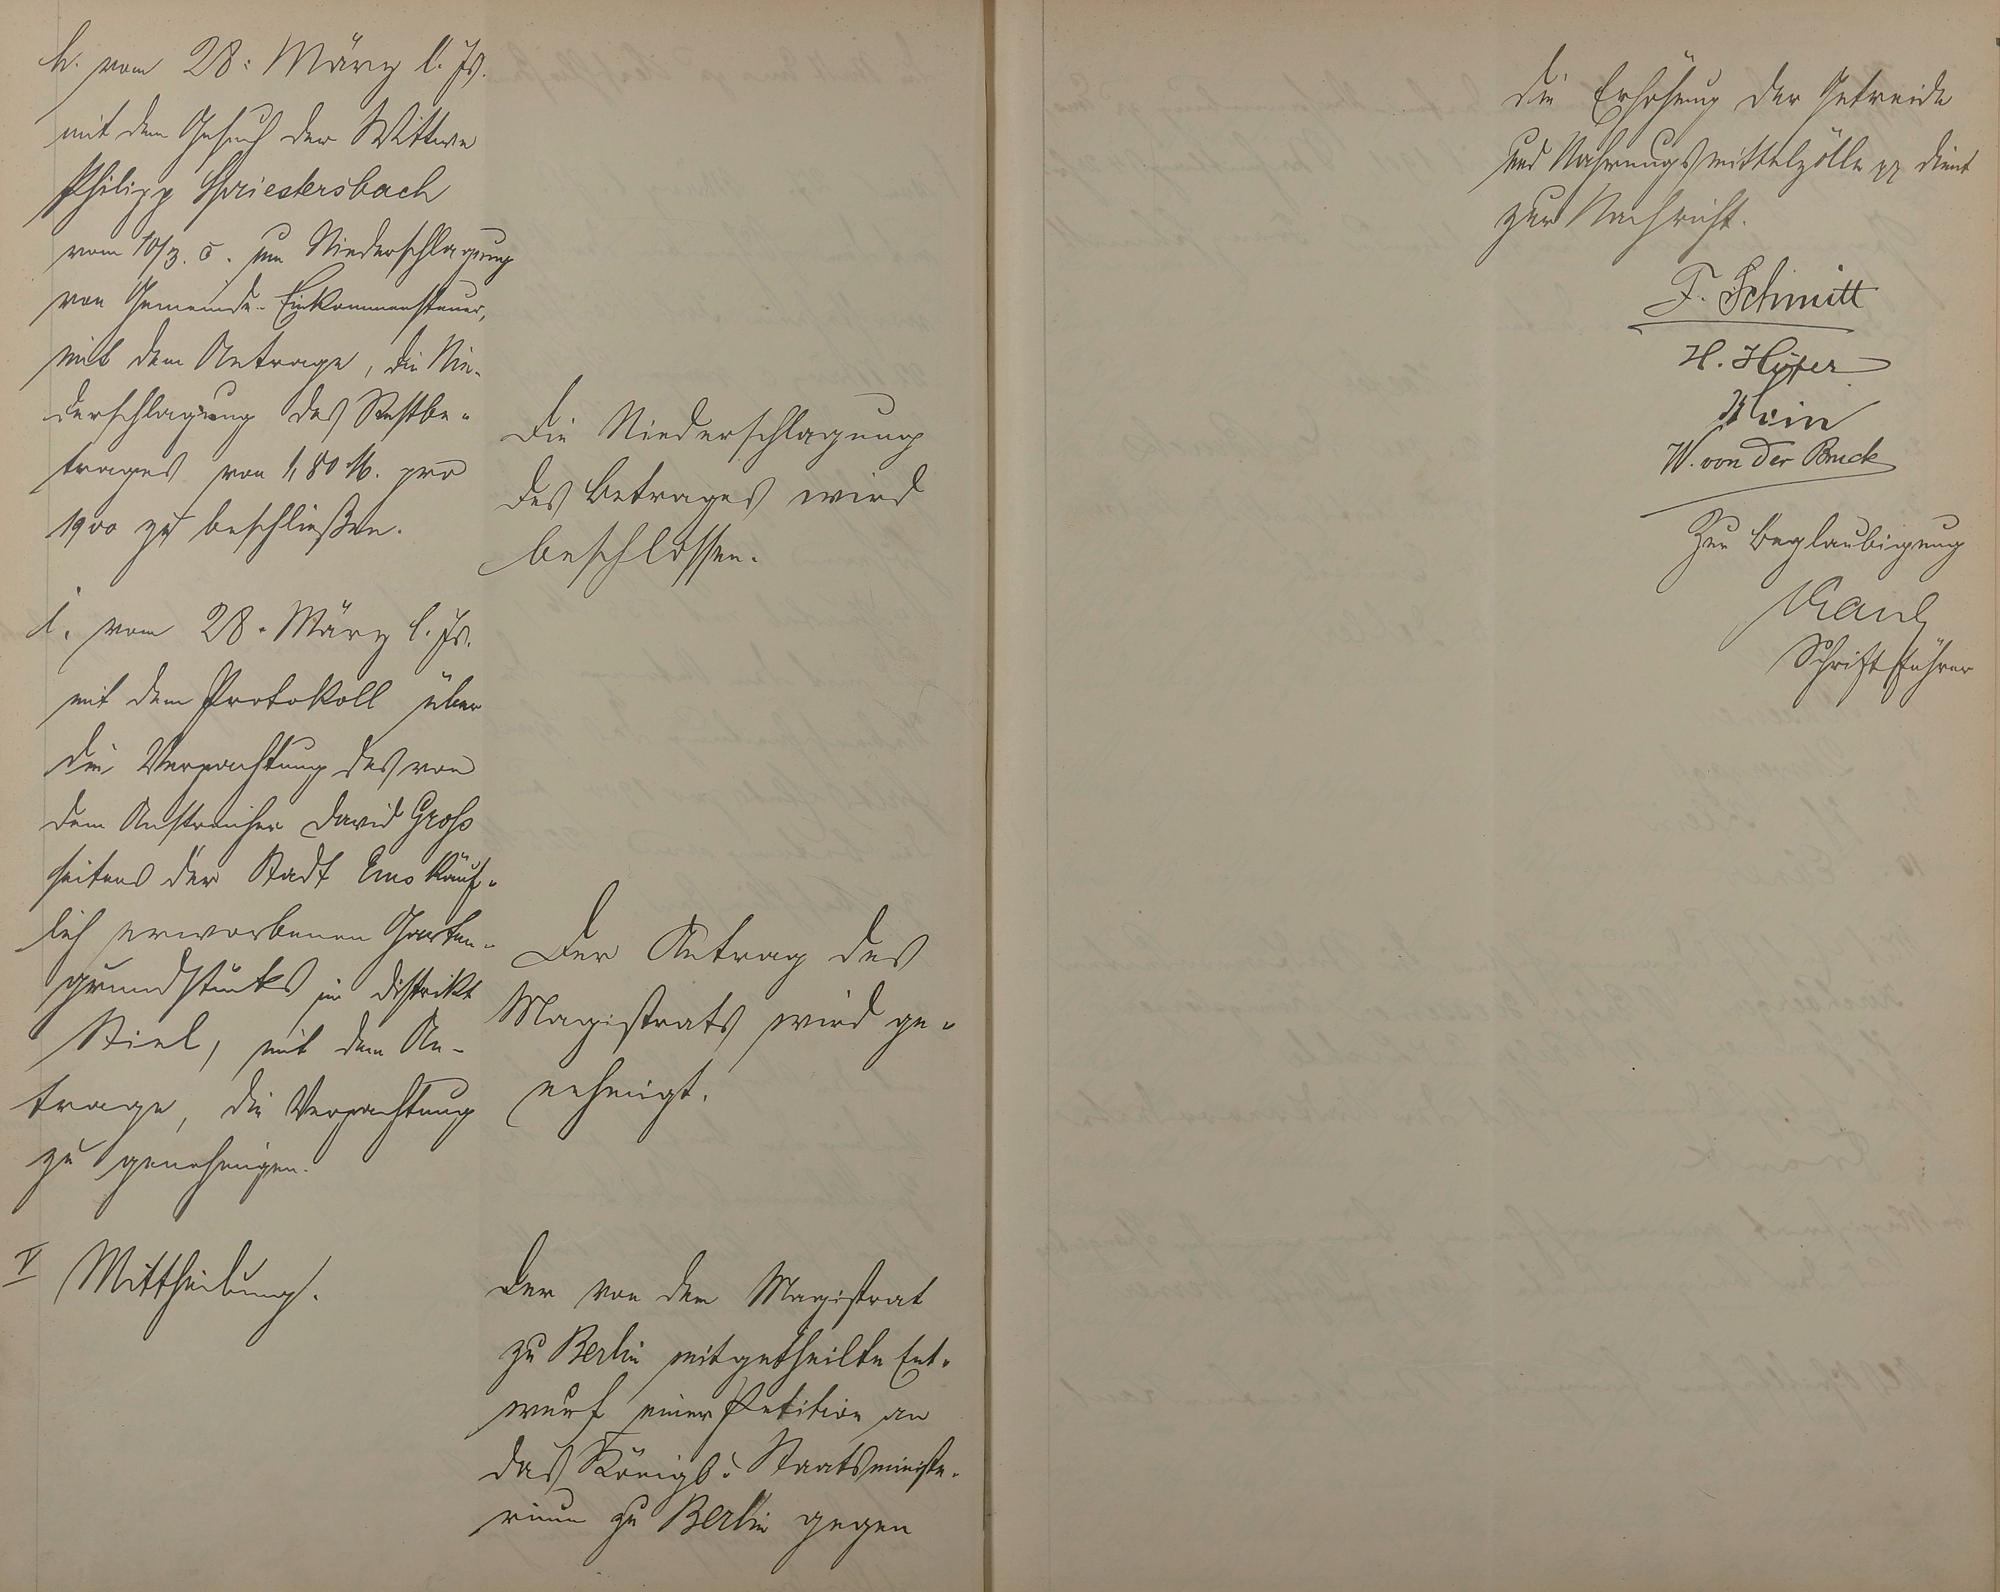 h. vom 28. März l. Js.
mit dem Gesuch der Wittwe
Philipp Spriestersbach
vom 10/3. c. um Niederschlagung
von Gemeinde-Einkommensteuer,
mit dem Antrage, die Nie-
derschlagung des Restbe-
trages von 1,80 M. pro
1900 zu beschließen.
Die Niederschlagung
des Betrages wird
beschlossen.
i. vom 28. März l. Js.
mit dem Protokoll über
die Verpachtung des von
dem Anstreicher David Groß
seitens der Stadt Ems käuf-
lich erworbenen Garten-
grundstücks im Distrikt
Kiel, mit dem An-
trage, die Verpachtung
zu genehmigen.
Der Antrag des
Magistrats wird ge-
nehmigt.
V Mittheilung.
Der von dem Magistrat
zu Berlin mitgetheilte Ent-
wurf einer Petition an
das Königl. Staatsministe-
rium zu Berlin gegen
die Erhöhung der Getreide
und Nahrungsmittelzölle pp dient
zur Nachricht.
F. Schmitt
H. Hyfer
Klein
W. von der Bruck
Zur Beglaubigung
Schriftführer